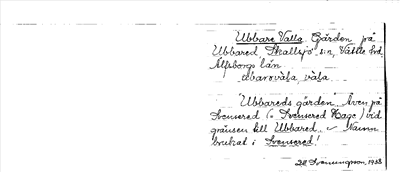 Ubbare Valla. Gärden på
Ubbared Skallsjö sn, Vättle hd,
Älfsborgs län
ubarovala, vala
"Ubbareds gärden" Även på
Svensered (= Svensered Hage) vid
gränsen till Ubbared. Namn
brukat i Svensered!
Svenungsson, 1933